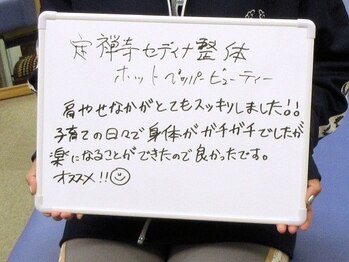 定禅寺セディナ整体
ホットペッパービューティー
肩やせなかがとてもスッキリしました!!
子育ての日々で身体がガチガチでしたが
楽になることができたので良かったです。
オススメ!!